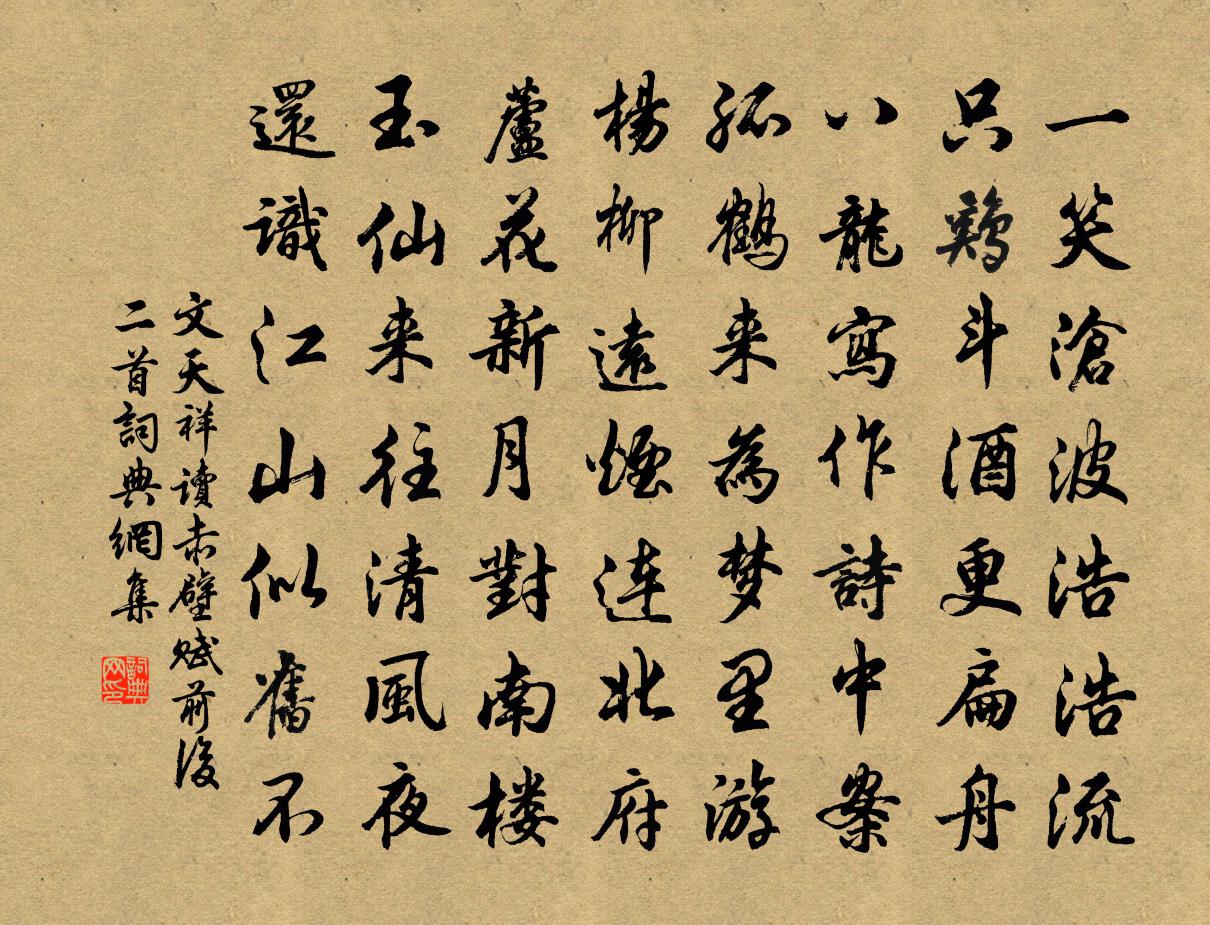 一笑滄波浩浩流
只鷄斗酒更扁舟
八龍寫作詩中案
孤鶴来為梦里游
楊柳遠煙连北府
蘆花新月對南楼
玉仙来往清風夜
還識江山似舊不
文天祥讀赤壁赋前後
二首詞典網集
詞典网印